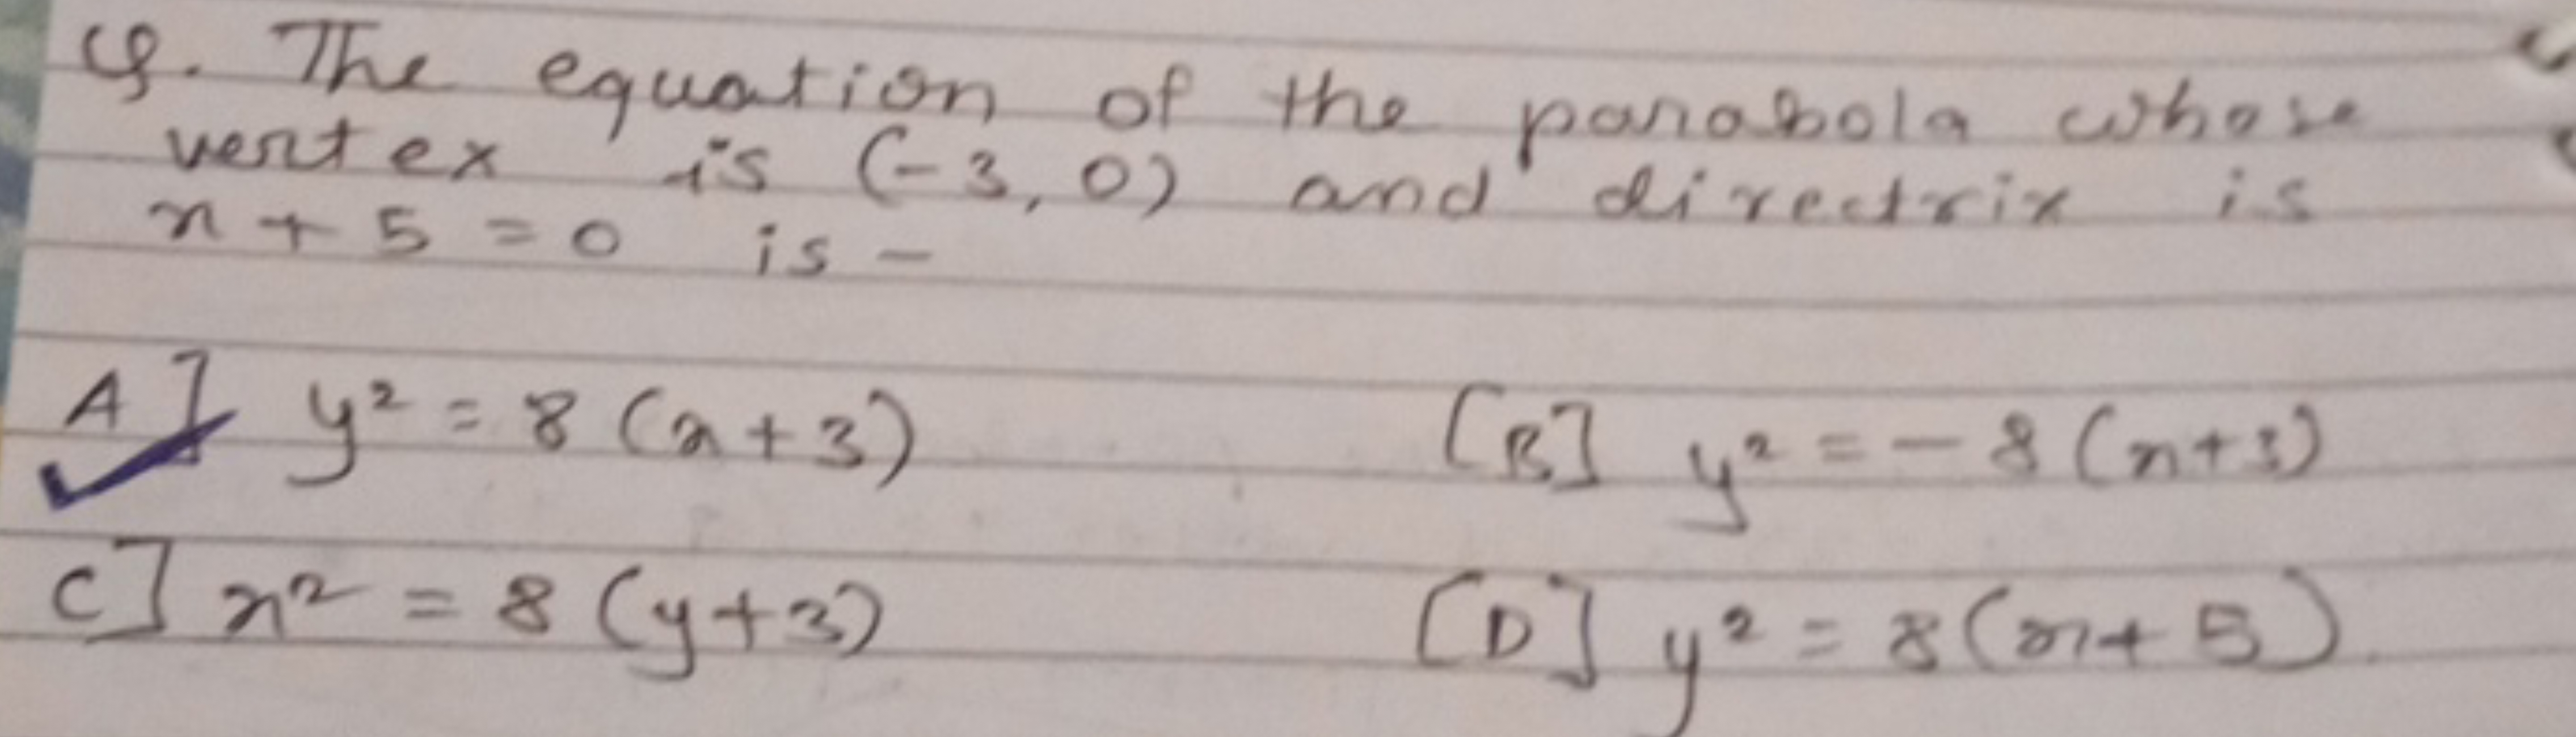 Q. The equation of the parabola whose
vertex is (-3, 0) and directrix is
x + 5 = 0 is -
A] y² = 8 (x+3)
[B] y² = - 8 (x+3)
C] x² = 8 (y+3)
[D] y² = 8(x+5)